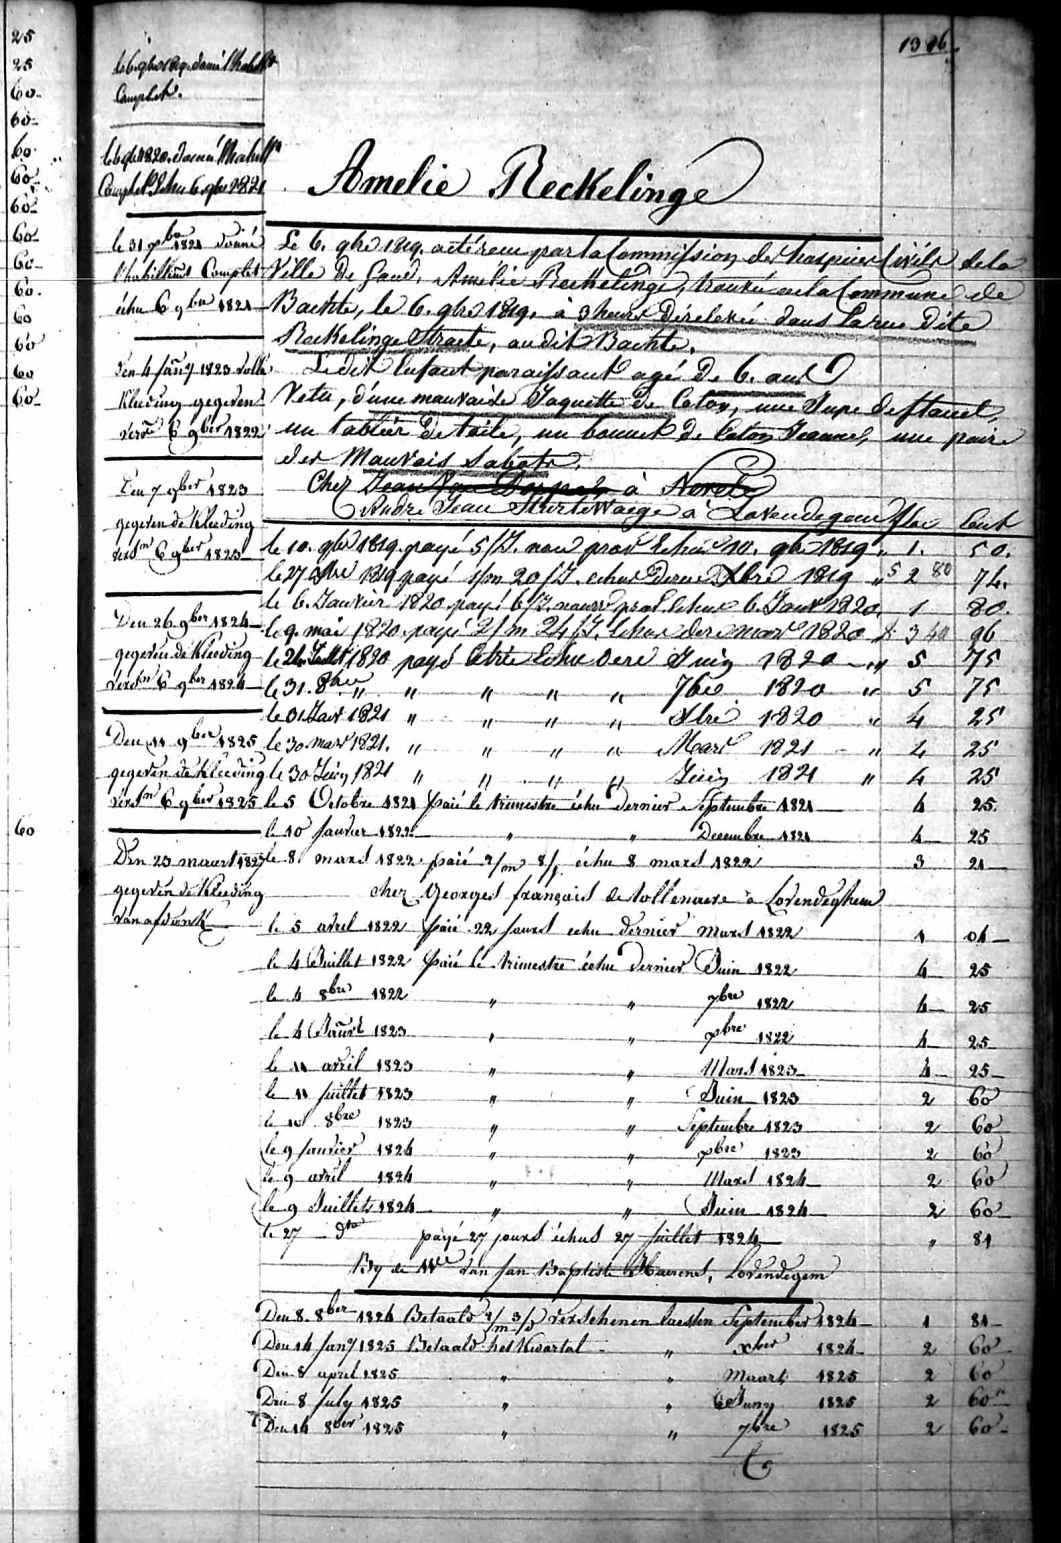 1316.
le 6. gbre 1819. donné l'habillt
Complet.
le 6 gbre 1820. donné l'habillt
Complet Echu 6. gbre 1821
le 31 gbre 1821 donné
l'habillemt Complet
échu 6 gbre 1821
Den 4 Janÿ 1823 volle
Kleeding gegeven
versn 6 gber 1822
Den 7 gber 1823
gegeven de Kleeding
versn 6 gber 1823
Den 26 gber 1824
gegeven de Kleeding
versn 6 gber 1824
Den 11 gber 1825
gegeven de Kleeding
versn 6 gber 1825
Den 23 maart 1827
gegeven de Kleeding
van afdank
Amelie Reckelinge
Le 6. gbre 1819. a été reçu par la Commission des hospices Civils de la
Ville de Gand, Amelie Reckelinge, trouvée en la Commune de
Bachte, le 6. gbre 1819. à 3 heures de relevée dans la rue dite
Reckelinge Straete, au dit Bachte.
Le dit Enfant paraissant agé de 6. ans
Vetu, d'une mauvaise Jaquette de Coton, une Jupe de flanel,
un tablier de toile, un bonnet de Coton, une paire
des Mauvais Sabots.
Chez Jean Van à Nevele
Andre Jean à Lovendegem Flor Cent
le 10. gbre 1819. payé 5/J. nour prov Echue 10. gbre 1819 " 1. 50.
le 27 Xbre 1819 payé 1/m 20/J. echus dernr Xbre 1819 " 2 80 74.
le 6 Janvier 1820 payé 6/J. nourr prov Echue 6. Janv 1820. 1 80.
le 9. mai 1820. payé 2/m 24/J. Echus der mars 1820 3 40 96
le 24 Juillt 1820 payé le trie Echu dere Juin 1820 " 5 75
le 31. 8bre " " " " " 7bre 1820 " 5 75
le 31. Janv 1821 " " " " Xbre 1820 " 4 25
le 30 mars 1821. " " " " Mars 1821 " 4 25
le 30 Juin 1821 " " " " Juin 1821 " 4 25
le 5 Octobre 1821 paié le trimestre échu dernier Septembre 1821 4 25.
le 10 Janvier 1822 " " Decembre 1821 4 25
le 8 mars 1822 paié 2/m 8/j échu 8 mars 1822 3 21
chez Georges françois de Vollenaere à Lovendeghem
le 5 avril 1822 paié 22 jours echu dernier Mars 1822 1 01
le 4 Juillet 1822 paié le trimestre échu dernier Juin 1822 4 25
le 4 8bre 1822 " " 7bre 1822 4 25
le 4 Janvr 1823 " " Xbre 1822 4 25
le 11 avril 1823 " " Mars 1823 4 25
le 11 Juillet 1823 " " Juin 1823 2 60
le 10 8bre 1823 " " Septembre 1823 2 60
le 9 Janvier 1824 " " Xbre 1823 2 60
le 9 avril 1824 " " Mars 1824 2 60
le 9 Juillet 1824 " " Juin 1824 2 60
le 27 dto payé 27 jours échus 27 Juillet 1824 " 81
By de Wwe van Jan Baptiste, Lovendegem
Den 8. 8ber 1824 Betaald 2/m 3/d verschenen laesten September 1824 1 81
Den 14 Janÿ 1825 Betaald het Kwartal " Xber 1824 2 60
Den 8 april 1825 " " Maart 1825 2 60
Den 8 July 1825 " " Juny 1825 2 60
Den 14 8ber 1825 " " 7bre 1825 2 60
25
25
60
60
60
60
60
60
60
60
60
60
60
60
60